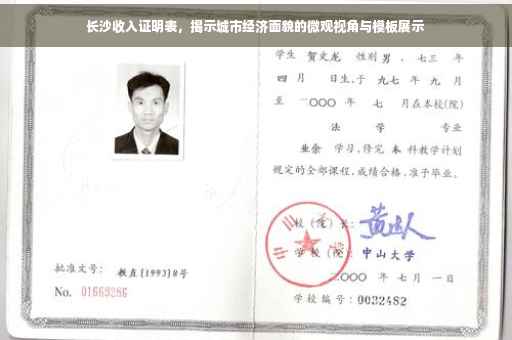 长沙收入证明表，揭示城市经济面貌的微观视角与模板展示
学生 贺文龙 性别 男 ，七三 年
四 月 日生，于 九七 年 九 月
至 二〇〇〇 年 七 月在本校(院)
法 学 专业
业余 学习，修完 本 科教学计划
规定的全部课程，成绩合格，准予毕业。
校（院）长：
学校（院）： 中山大学
二〇〇〇 年 七 月 一 日
批准文号： 教直[1993]8号
No. 01663286
学校编号：0032482